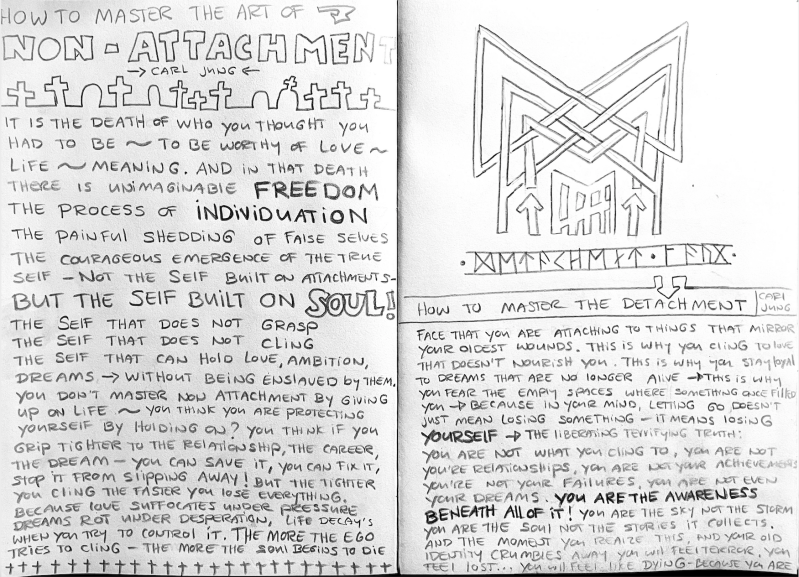 HOW TO MASTER THE ART OF
NON-ATTACHMENT
→ CARL JUNG ←
IT IS THE DEATH OF WHO YOU THOUGHT YOU
HAD TO BE ~ TO BE WORTHY OF LOVE ~
LIFE ~ MEANING. AND IN THAT DEATH
THERE IS UNIMAGINABLE FREEDOM
THE PROCESS OF INDIVIDUATION
THE PAINFUL SHEDDING OF FALSE SELVES
THE COURAGEOUS EMERGENCE OF THE TRUE
SELF - NOT THE SELF BUILT ON ATTACHMENTS-
BUT THE SELF BUILT ON SOUL!
THE SELF THAT DOES NOT GRASP
THE SELF THAT DOES NOT CLING
THE SELF THAT CAN HOLD LOVE, AMBITION,
DREAMS → WITHOUT BEING ENSLAVED BY THEM.
YOU DON'T MASTER NON ATTACHMENT BY GIVING
UP ON LIFE ~ YOU THINK YOU ARE PROTECTING
YOURSELF BY HOLDING ON? YOU THINK IF YOU
GRIP TIGHTER TO THE RELATIONSHIP, THE CAREER,
THE DREAM - YOU CAN SAVE IT, YOU CAN FIX IT,
STOP IT FROM SLIPPING AWAY! BUT THE TIGHTER
YOU CLING THE FASTER YOU LOSE EVERYTHING.
BECAUSE LOVE SUFFOCATES UNDER PRESSURE
DREAMS ROT UNDER DESPERATION, LIFE DECAY'S
WHEN YOU TRY TO CONTROL IT. THE MORE THE EGO
TRIES TO CLING - THE MORE THE SOUL BEGINS TO DIE
HOW TO MASTER THE DETACHMENT
CARL
JUNG
FACE THAT YOU ARE ATTACHING TO THINGS THAT MIRROR
YOUR OLDEST WOUNDS. THIS IS WHY YOU CLING TO LOVE
THAT DOESN'T NOURISH YOU. THIS IS WHY YOU STAY LOYAL
TO DREAMS THAT ARE NO LONGER ALIVE → THIS IS WHY
YOU FEAR THE EMPTY SPACES WHERE SOMETHING ONCE FILLED
YOU → BECAUSE IN YOUR MIND, LETTING GO DOESN'T
JUST MEAN LOSING SOMETHING - IT MEANS LOSING
YOURSELF → THE LIBERATING TERRIFYING TRUTH:
YOU ARE NOT WHAT YOU CLING TO, YOU ARE NOT
YOU'RE RELATIONSHIPS, YOU ARE NOT YOUR ACHIEVEMENTS
YOU'RE NOT YOUR FAILURES, YOU ARE NOT EVEN
YOUR DREAMS. YOU ARE THE AWARENESS
BENEATH ALL OF IT! YOU ARE THE SKY NOT THE STORM
YOU ARE THE SOUL NOT THE STORIES IT COLLECTS.
AND THE MOMENT YOU REALIZE THIS, AND YOUR OLD
IDENTITY CRUMBLES AWAY, YOU WILL FEEL TERROR, YOU
FEEL LOST... YOU WILL FEEL LIKE DYING-BECAUSE YOU ARE